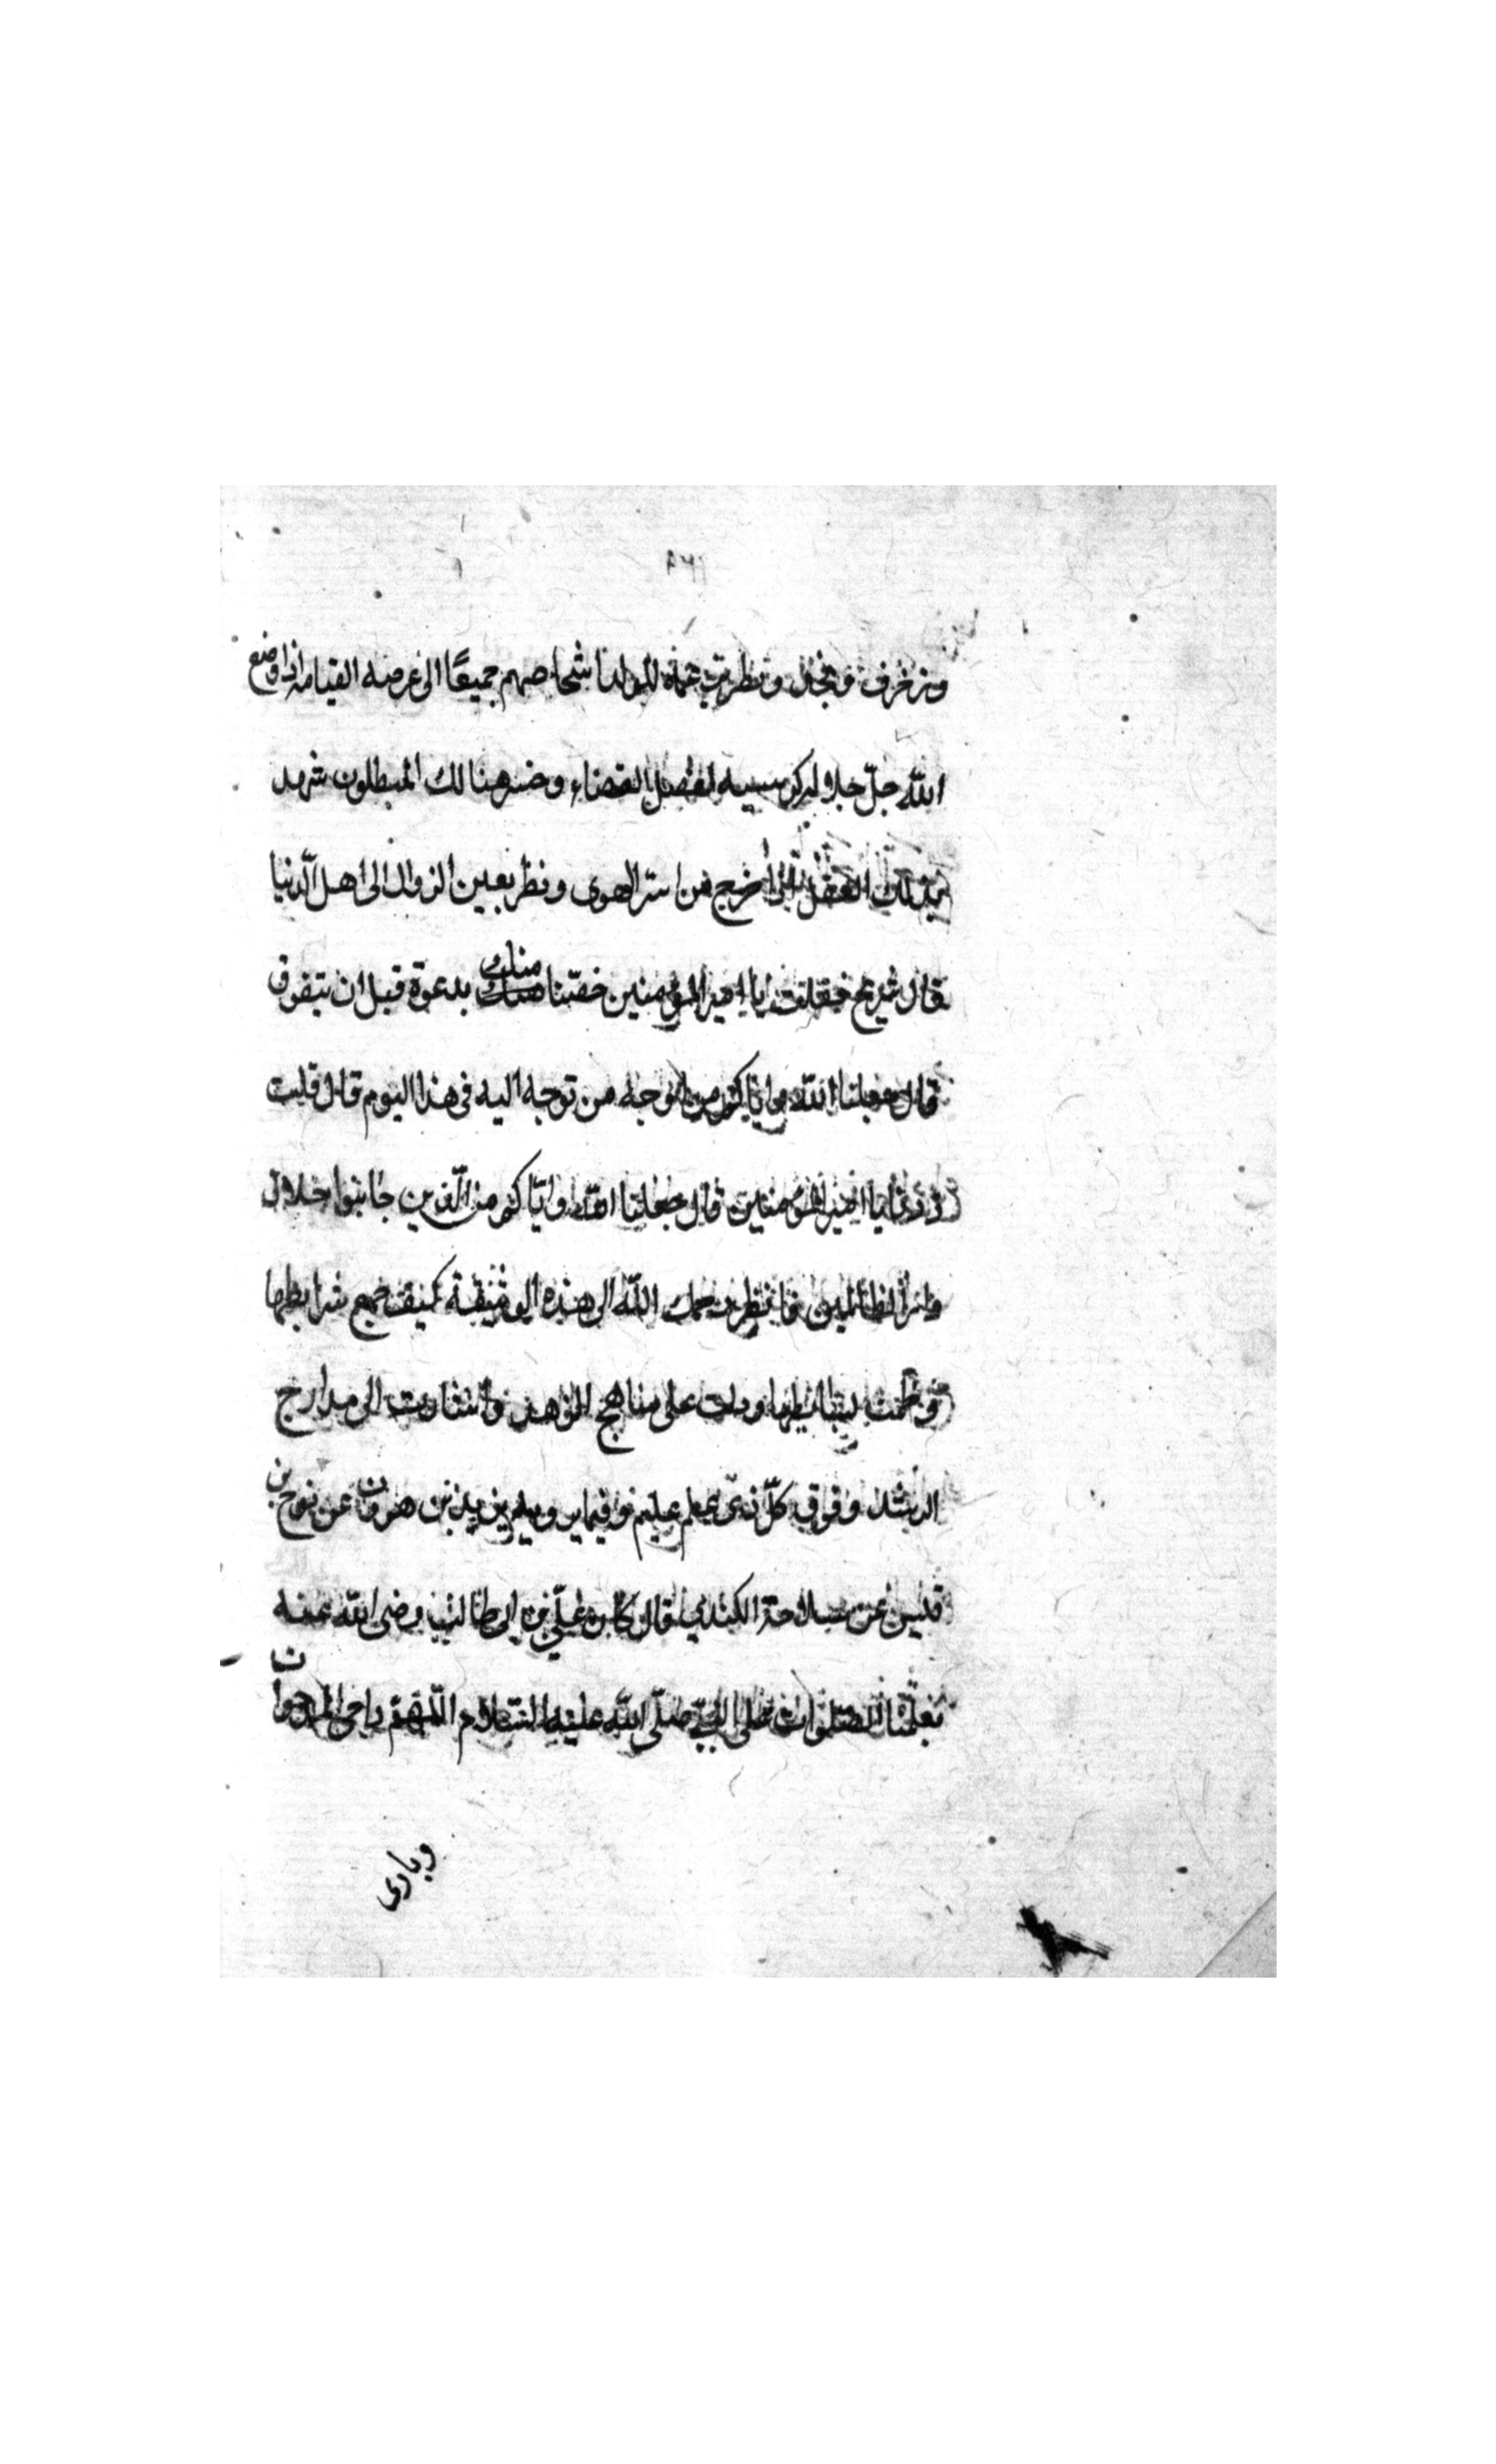 ١٢٩
وزخرف ونجد ونظر بزعمه للولد اشخاصهم جميعًا الى عرصه القيامه اذا وضع
الله جلّ جلاله كرسيه لفصل القضاء وخسر هنالك المبطلون شهد
بذلك العقل اذا خرج من اسر الهوى ونظر بعين الزوال الى اهل الدّنيا
قال شريح فقلت يا امير المؤمنين خصّنا منك بدعوة قبل ان نتفرق
قال جعلنا الله واياكم من اوجه من توجه اليه فى هذا اليوم قال قلت
زدنى يا امير المؤمنين قال جعلنا الله وايّاكم من الّذين جانبوا خلال
الظالمين فانظر رحمك الله الى هذه الوثيقة كيف جمع شرايطها
ودلت على مناهج الزهد واشارت الى مدارج
الرشد وفوق كلّ ذى علم عليم وفيما يرويه يزيد بن هرون عن نوح بن
قيس عن سلامة الكندى قال كان علىّ بن ابى طالب رضى الله عنه
يعلّمنا الصلوات على النبىّ صلّى الله عليه السّلام اللّهمّ داحى المدحوات
وبارى